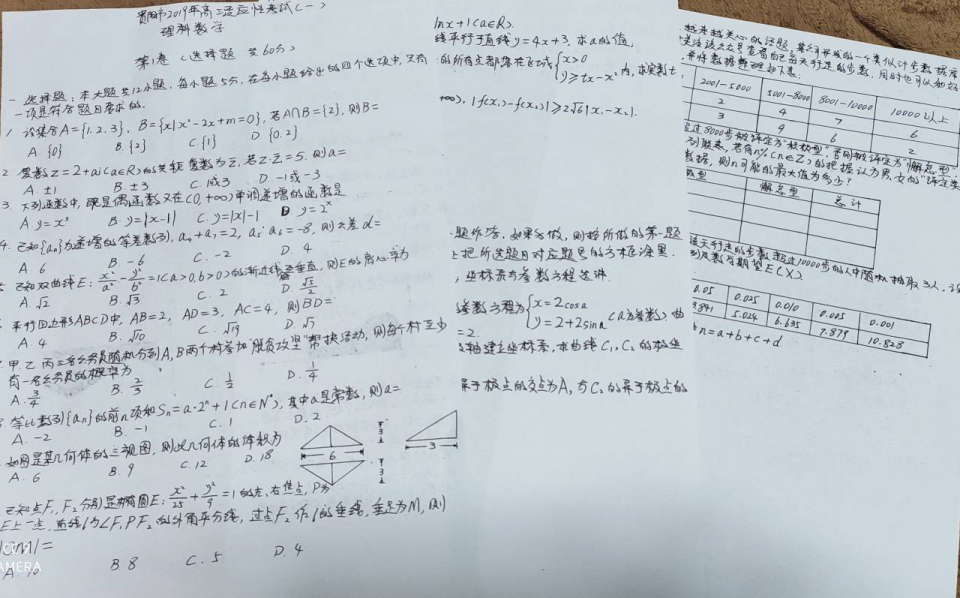 贵阳市2019年高三适应性考试(一)
理科数学
第Ⅰ卷(选择题 共60分)
一 选择题：本大题共12小题，每小题5分，在每小题给出的四个选项中，只有
一项是符合题目要求的.
1 设集合A={1,2,3}，B={x|x²-2x+m=0}，若A∩B={2}，则B=
A. {0} B. {2} C. {1} D. {0,2}
2 复数z=2+ai(a∈R)的共轭复数为z̄，若z·z̄=5，则a=
A. ±1 B. ±3 C. 1或3 D. -1或-3
3. 下列函数中，既是偶函数又在(0,+∞)单调递增的函数是
A. y=x³ B. y=|x-1| C. y=|x|-1 D y=2ˣ
4. 已知{aₙ}为递增的等差数列，a₄+a₇=2，a₅·a₆=-8，则公差d=
A. 6 B. -6 C. -2 D. 4
已知双曲线E：x²/a²-y²/b²=1(a>0,b>0)的渐近线垂直，则E的离心率为
A. √2 B. √3 C. 2 D.
平行四边形ABCD中，AB=2，AD=3，AC=4，则BD=
A. 4 B. √10 C. √19 D. √7
甲乙丙三名公务员随机分到A,B两个村参加"脱贫攻坚"帮扶活动，则每个村至少
有一名公务员的概率为
A. 3/4 B. 2/3 C. 1/2 D. 1/4
等比数列{aₙ}的前n项和Sₙ=a·2ⁿ+1(n∈N*)，其中a是常数，则a=
A. -2 B. -1 C. 1 D. 2
如图是某几何体的三视图，则此几何体的体积为
A. 6 B. 9 C. 12 D. 18
6
3
3
3
已知点F₁,F₂分别是椭圆E：x²/25+y²/9=1的左、右焦点，P为
E上一点，直线l为∠F₁PF₂的外角平分线，过点F₂作l的垂线，垂足为M，则
|OM|=
A. 10 B. 8 C. 5 D. 4
lnx+1(a∈R).
线平行于直线y=4x+3，求a的值，
的所有点都落在区域{x>0
y≥tx-x²内，求实数t
+∞)，|f(x₁)-f(x₂)|≥2√6|x₁-x₂|.
题作答，如果多做，则按所做的第一题
上把所选题目对应题号的方框涂黑.
，坐标系与参数方程选讲
参数方程为{x=2cosα
y=2+2sinα(α为参数)，曲
=2.
轴建立坐标系，求曲线C₁,C₂的极坐
异于极点的交点为A，与C₂的异于极点的
越来越关心的话题，某公司开发的一个类似计步数据库
2001-5000 5001-8000 8001-10000 10000以上
2 4 7 6
3 9 6 2
过8000步被评定为"积极型"，否则被评定为"懈怠型"
数据，则n可能的最大值为多少？
极型 懈怠型 总计
0.05 0.025 0.010 0.005 0.001
3.841 5.024 6.635 7.879 10.828
n=a+b+c+d